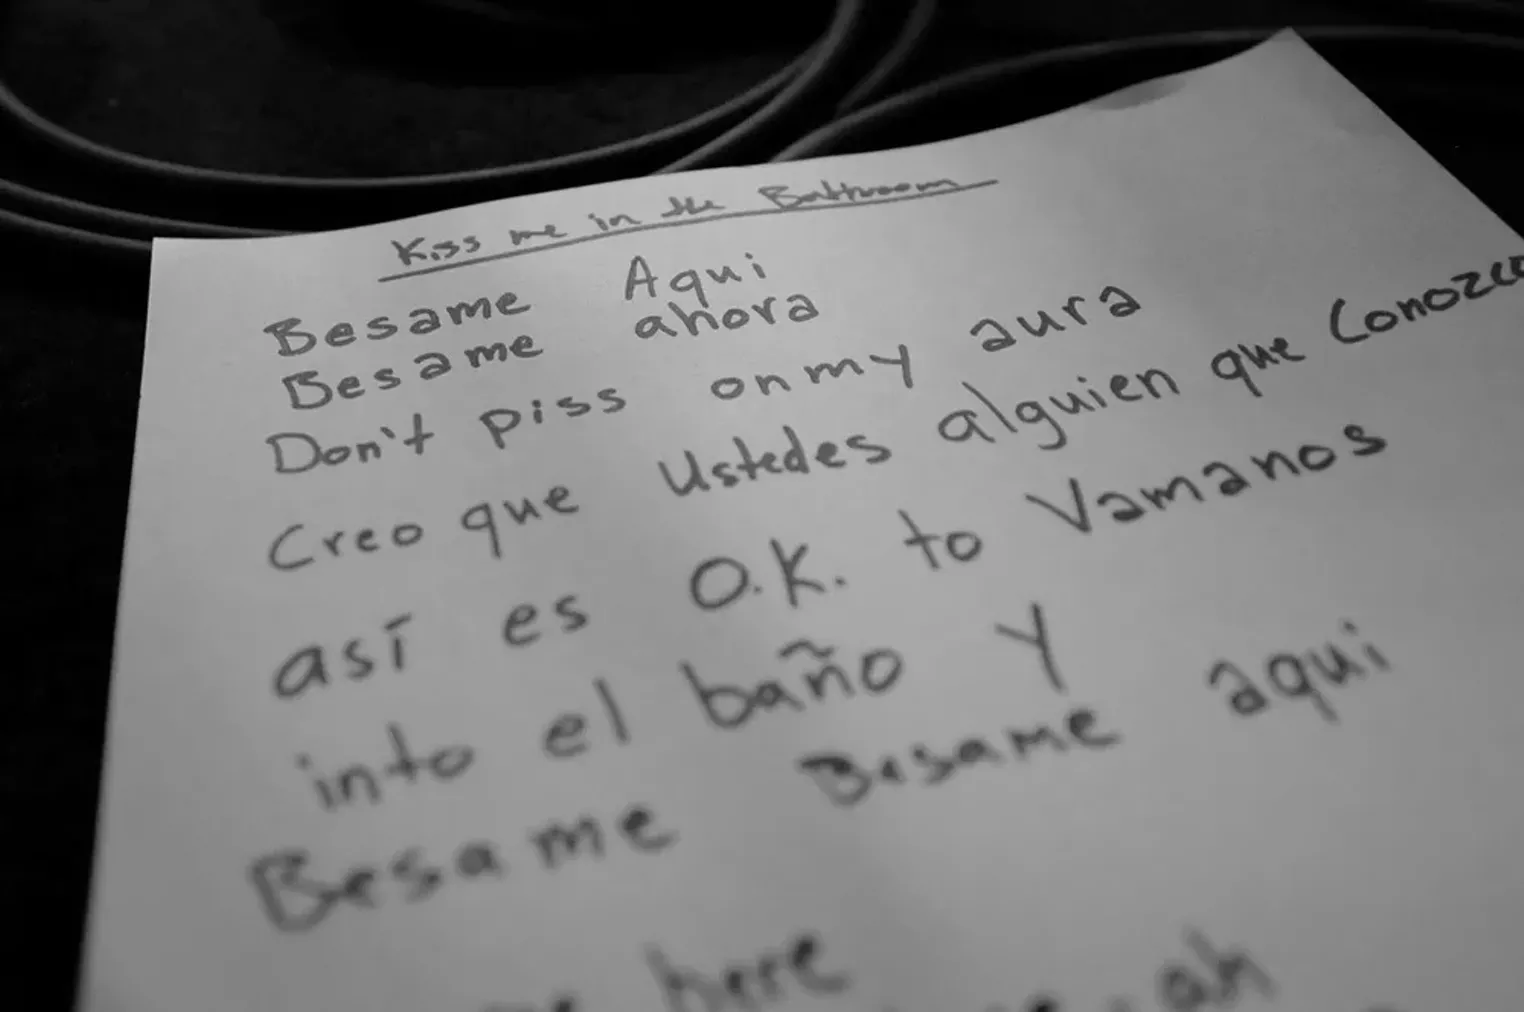 Kiss me in the Bathroom
Besame Aqui
Besame ahora
Don't piss on my aura
Creo que Ustedes alguien que Conozco
así es O.K. to Vamanos
into el baño Y
Besame Besame aqui
here